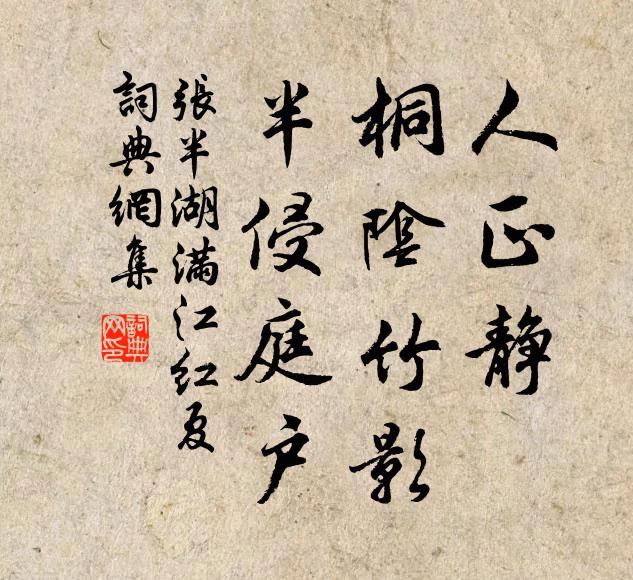 人正静
桐陰竹影
半侵庭户
張半湖满江红夏
詞典網集
詞典网印